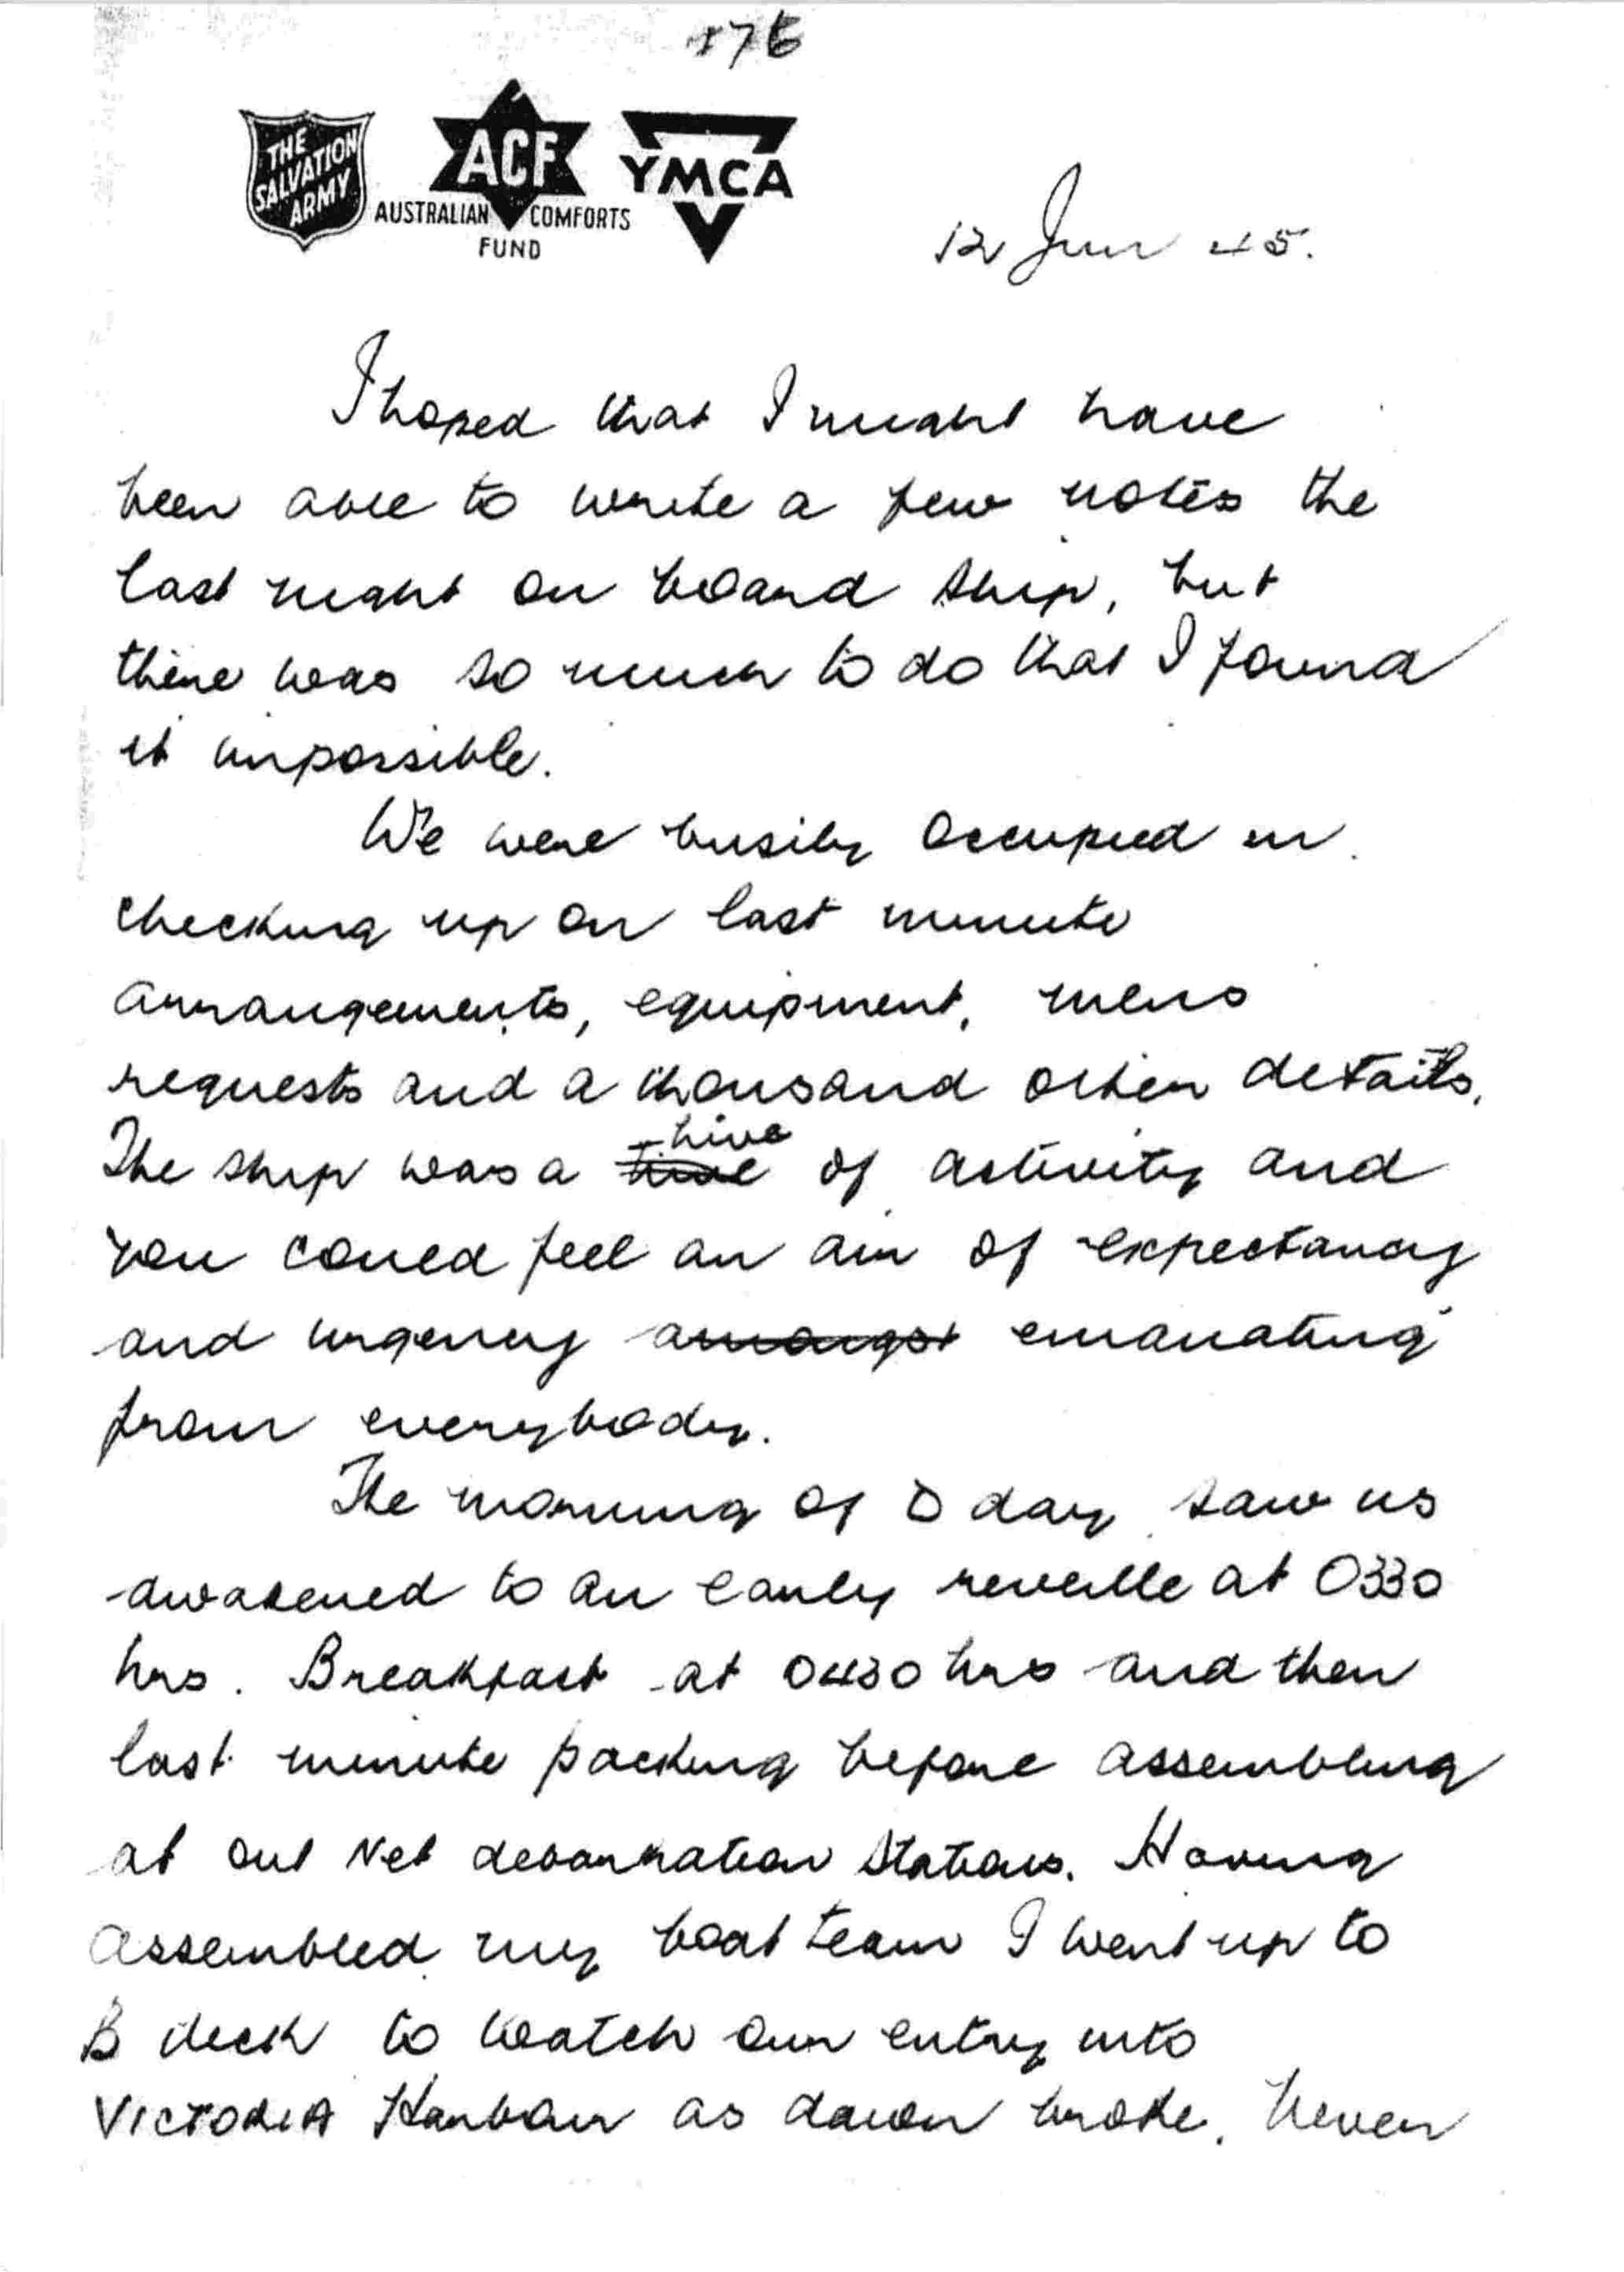 176
THE SALVATION ARMY
ACF
AUSTRALIAN COMFORTS FUND
YMCA
12 Jun 45.
I hoped that I might have
been able to write a few notes the
last night on board ship, but
there was so much to do that I found
it impossible.
We were busily occupied in
checking up on last minute
arrangements, equipment, mens
requests and a thousand other details.
hive
The ship was a of activity and
you could feel an air of expectancy
and urgency amongst emanating
from everybody.
The morning of D day saw us
awakened to an early reveille at 0330
hrs. Breakfast at 0430 hrs and then
last minute packing before assembling
at out Net debarkation Stations. Having
assembled my boat team I went up to
B deck to watch our entry into
VICTORIA Harbour as dawn broke. Never